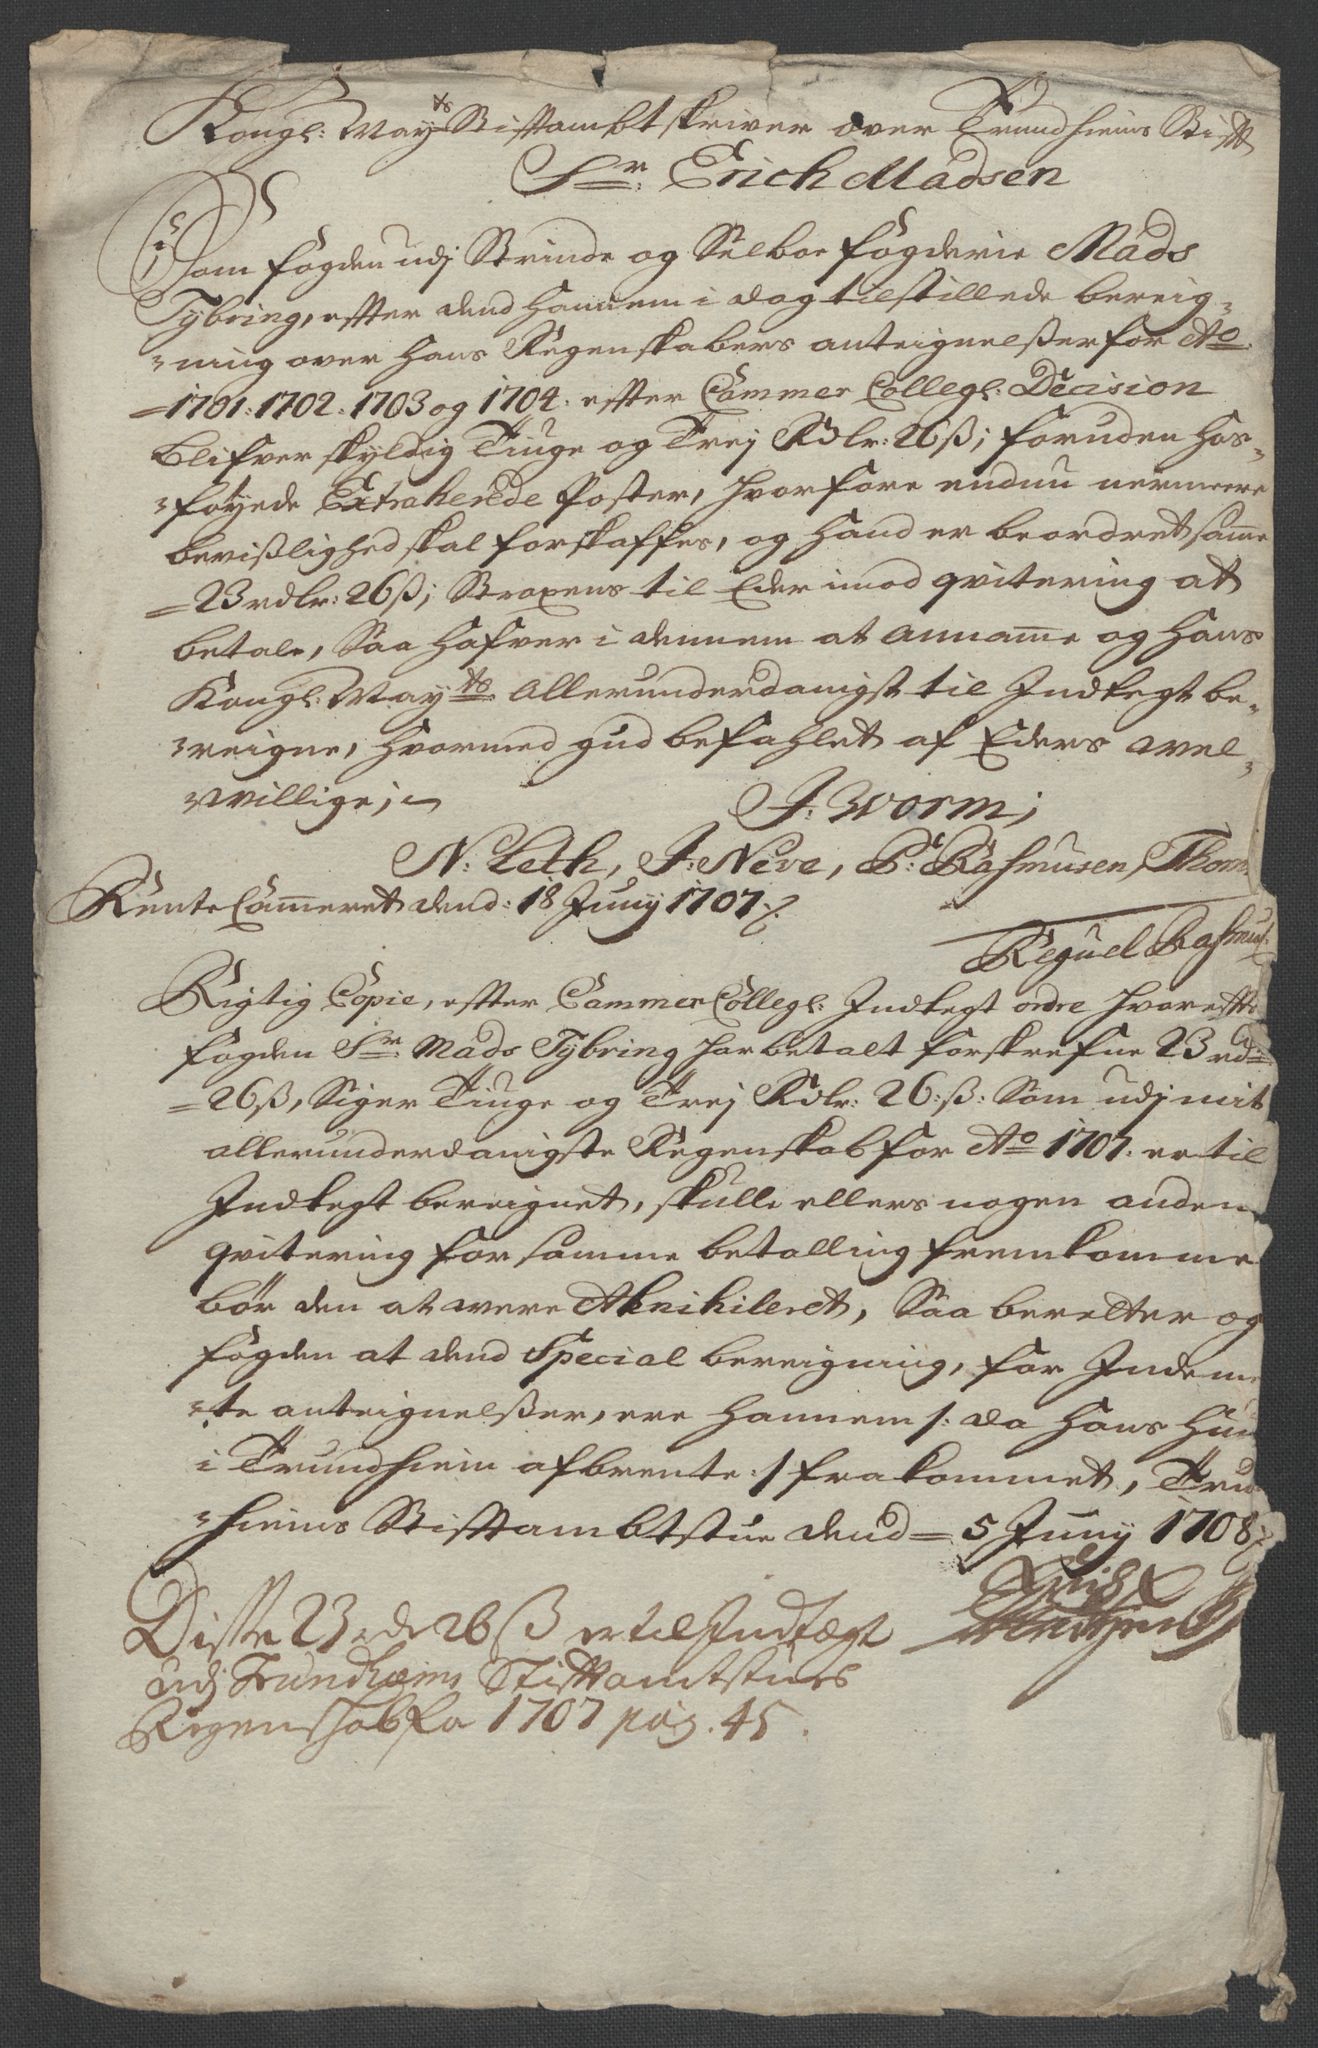 Kongl: May:ts Stiftambtskriver over Trundhiems Stift
Sr: Erich Madsen
Som fogden udj Strinde og Selboe fogderie Mads
Tybring, efter dend hannem i dag tilstillede bereig-
-ning over hans Regenskabers anteignelsser for Ao
1701: 1702: 1703 og 1704. efter Cammer Collegl: Decision
blifver skyldig Tiuge og Trej Rdlr: 26 ß; foruden hos-
-føyede Extraherede Poster, hvorfore endnu nermeere
bevißlighed skal forskaffes, og hand er beordret samme
=23 rdlr: 26 ß; Straxens til Eder imod qvitering at
betale, Saa hafver i dennem at annamme og Hans
Kongl: May:ts Allerunderdanigst til Indtegt be-
-reigne, hvormed gud befahlet af Eders vel-
-villige;
J: Worm;
N: Leth, J: Neve, P: Rasmusen, Thom
RenteCammeret dend: 18 Juny 1707
Reguel Rasmus
Rigtig Copie, efter Cammer Collegl: Indtegt ordre hvorefter
fogden Sr: Mads Tybring har betalt forskrefne 23 rd
=26 ß, Siger Tiuge og Trej Rdlr: 26: ß: Som udj mit
allerunderdanigste Regenskab for Ao 1707. er til
Indtegt bereignet, skulle ellers nogen anden
qvitering for samme betalling fremkomme
bør den at were Aknihileret, Saa beretter og
fogden at dend Special bereigning, for Indem
-te anteignelßer, ere hannem /: da hans Huu
i Trundhiem afbrente :/ frakommet, Trun
-hiems Stiftambtstue dend = 5 Juny 1708
Erich
Disse 23 rd 26 ß er til Indtægt
udj Trundhæims Stiftamtstues
Regenskab for 1707 pag. 45.